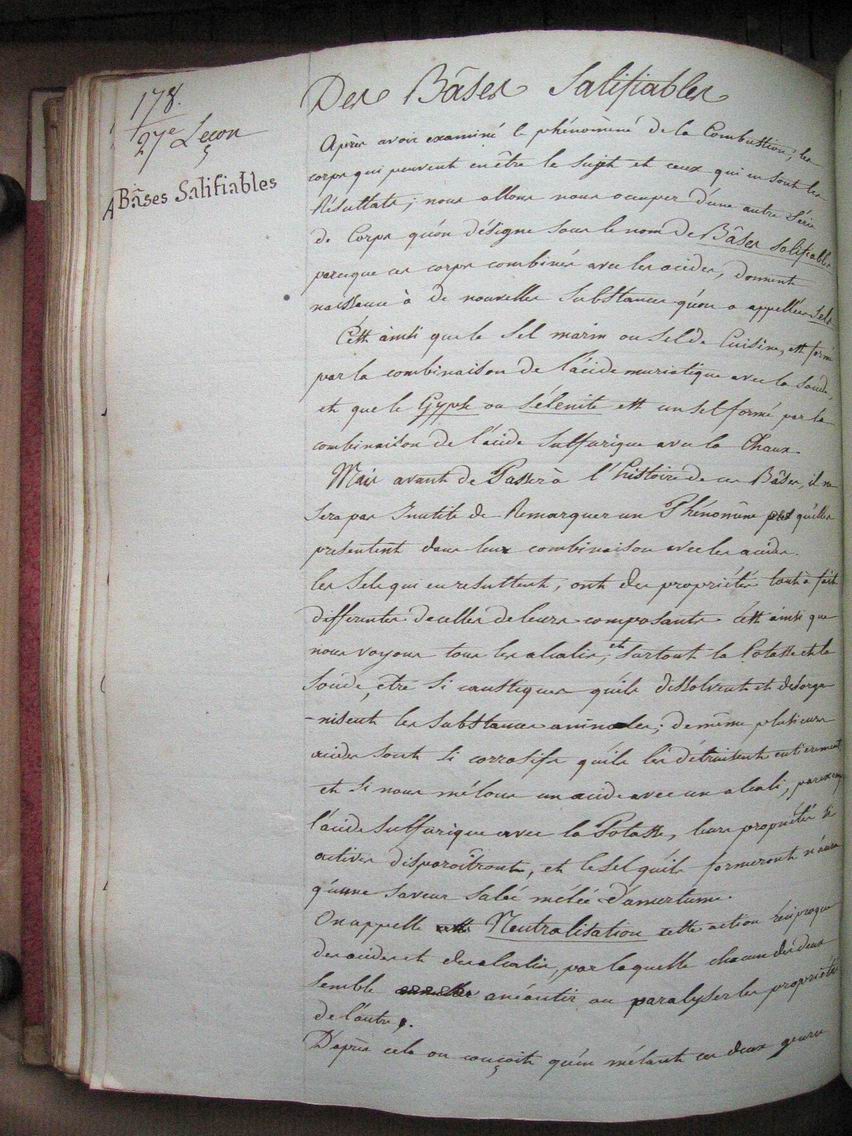 178.
27e Leçon
A Bâses Salifiables
Des Bâses Salifiables
Après avoir examiné le phénoméné de la Combustion; les
corps qui peuvent en être le sujet et ceux qui en sont les
Résultats; nous allons nous occuper d'une autre série
de Corps qu'on désigne sous le nom de Bâses salifiables
parceque ces corps combinés avec les acides, donnent
naissance à de nouvelles substances qu'on a appellées Sels
C'est ainsi que le sel marin ou sel de Cuisine, est formé
par la combinaison de l'acide muriatique avec la soude,
et que le Gypse ou Sélénite est un sel formé par la
combinaison de l'acide sulfurique avec la Chaux.
Mais avant de Passer à l'histoire de ces Bâses, il ne
sera pas Inutile de Remarquer un Phénomène qu'elles
présentent dans leur combinaison avec les acides.
les sels qui en resultent, ont des propriétés tout à fait
differentes de celles de leurs composants. C'est ainsi que
nous voyons tous les alcalis, et surtout la Potasse et la
soude, être si caustiques qu'ils dissolvent et désorga
-nisent les substances animales; de même plusieurs
acides sont si corrosifs qu'ils les détruisent entierement
et si nous mélons un acide avec un alcali, par exemp
l'acide sulfurique avec la Potasse, leurs propriétés si
actives disparoîtront, et le sel qu'ils formeront n'aura
qu'une saveur salée mélée d'amertume.
On appelle Neutralisation cette action réciproque
des acides et des alcalis, par laquelle chacun des deux
semble anéantir ou paralyser les propriétés
de l'autre.
D'après cela on conçoit qu'en mélant ces deux genres